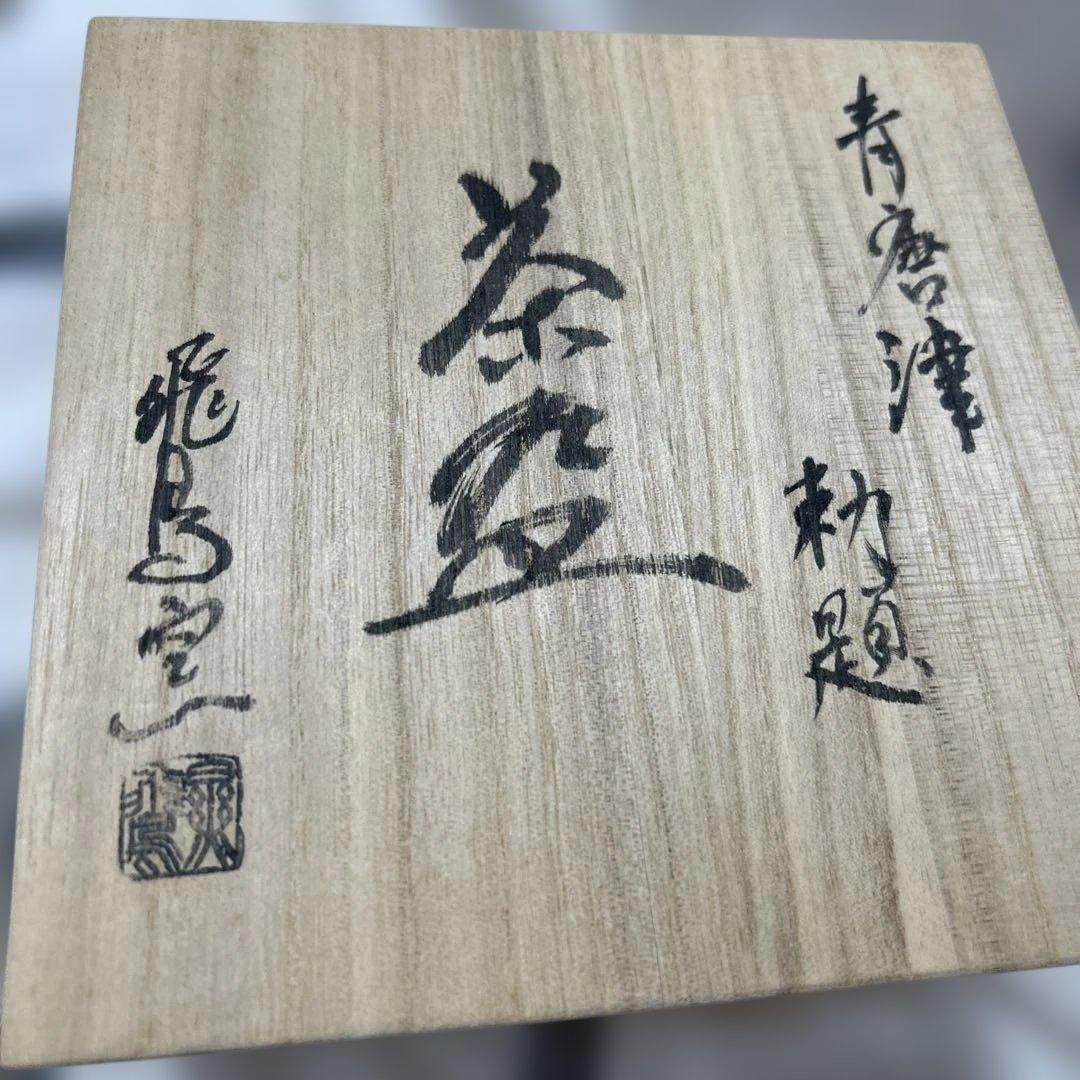 青唐津
勅題
茶盌
飛鳥窯